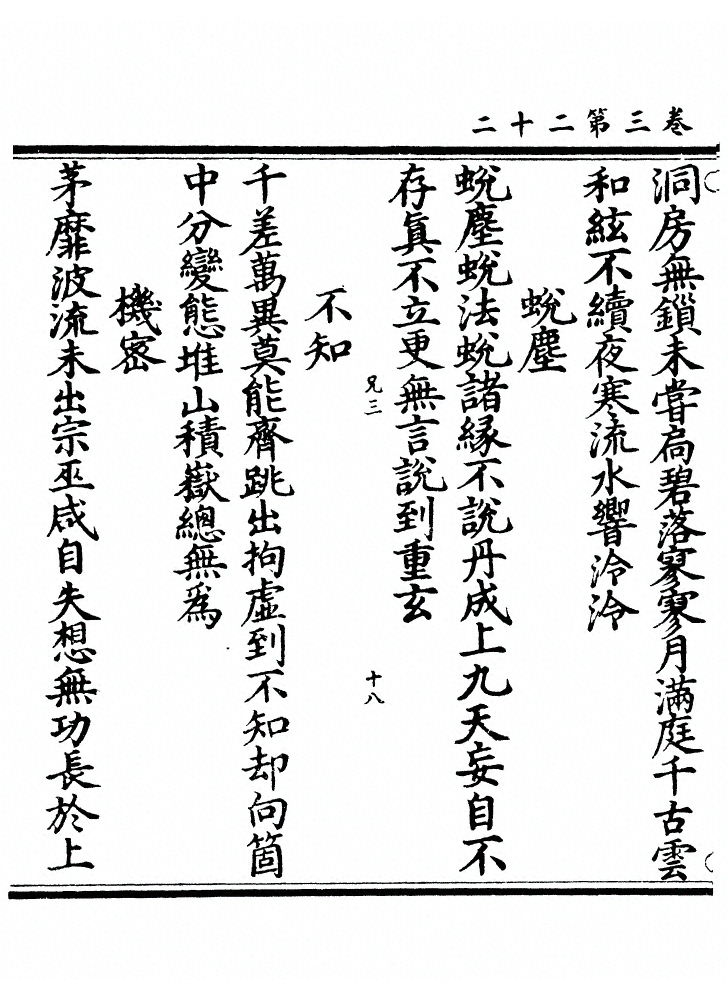 卷三第二十二
洞房無鎖未嘗扃碧落寥寥月滿庭千古雲
和絃不續夜寒流水響泠泠
蛻塵
蛻塵蛻法蛻諸緣不說丹成上九天妄自不
存眞不立更無言說到重玄
兄三
十八
不知
千差萬異莫能齊跳出拘虛到不知却向箇
中分變態堆山積嶽總無爲
機密
茅靡波流未出宗巫咸自失想無功長於上